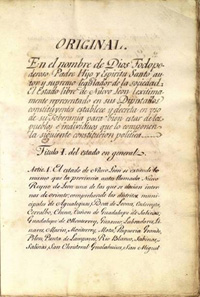 ORIGINAL.
En el nombre de Dios Todopo-
deroso, Padre Hijo y Espiritu Santo au-
tor y supremo legislador de la sociedad.
El Estado libre de Nuevo Leon legitima-
mente representado en sus Diputados
constituyentes establece y decreta en uso
de su soberania para bien estar de los
pueblos e individuos que lo componen
la siguiente constitucion politica
Titulo 1. del estado en general.
Artic. 1. El estado de Nuevo Leon se estiende lo
mismo que la provincia antes llamada Nuevo
Reyno de Leon una de las que se decian inter-
nas de oriente: comprehende los distritos munici-
pales de Agualeguas, Boca de Leones, Cadereyta,
Cerralvo, China, Cañon de Guadalupe de Salinas,
Guadalupe de
Marin, Monterrey, Mota, Pesqueria Grande,
Pilon, Punta de Lampazos, Rio Blanco, Sabinas,
Salinas, San Cristoval Gualahuises, San Miguel